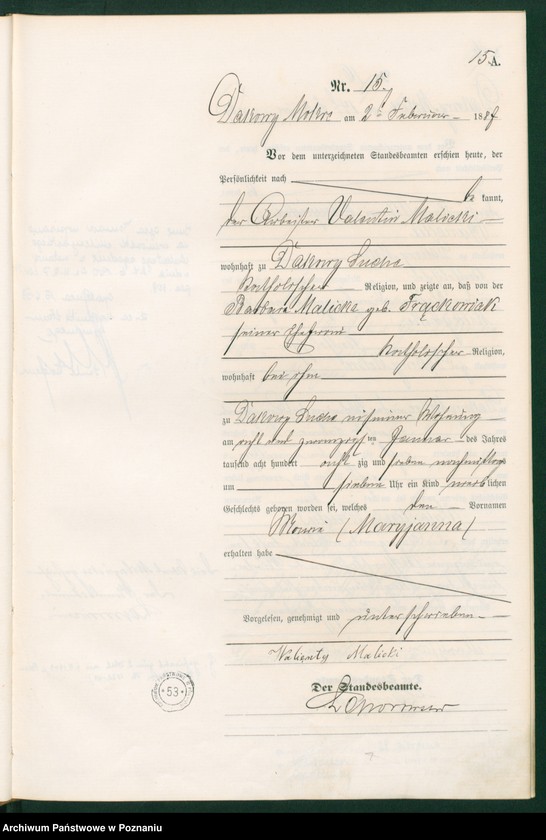 15 A.
Nr. 15
Dakowy Mokre am 2ten Februar 1887
Vor dem unterzeichneten Standesbeamten erschien heute, der
Persönlichkeit nach be kannt,
der Arbeiter Valentin Malicki
wohnhaft zu Dakowy Suche
katholischer Religion, und zeigte an, daß von der
Barbara Malicka geb. Frąckowiak
seiner Ehefrau
katholischer Religion,
wohnhaft bei ihm
zu Dakowy Suche in seiner Wohnung
am acht und zwanzigsten Januar des Jahres
tausend acht hundert acht zig und sieben nachmittags
um sieben Uhr ein Kind weib lichen
Geschlechts geboren worden sei, welches den Vornamen
Maria (Maryjanna)
erhalten habe
Vorgelesen, genehmigt und unterschrieben
Walenty Malicki
Der Standesbeamte.
53
Archiwum Państwowe w Poznaniu